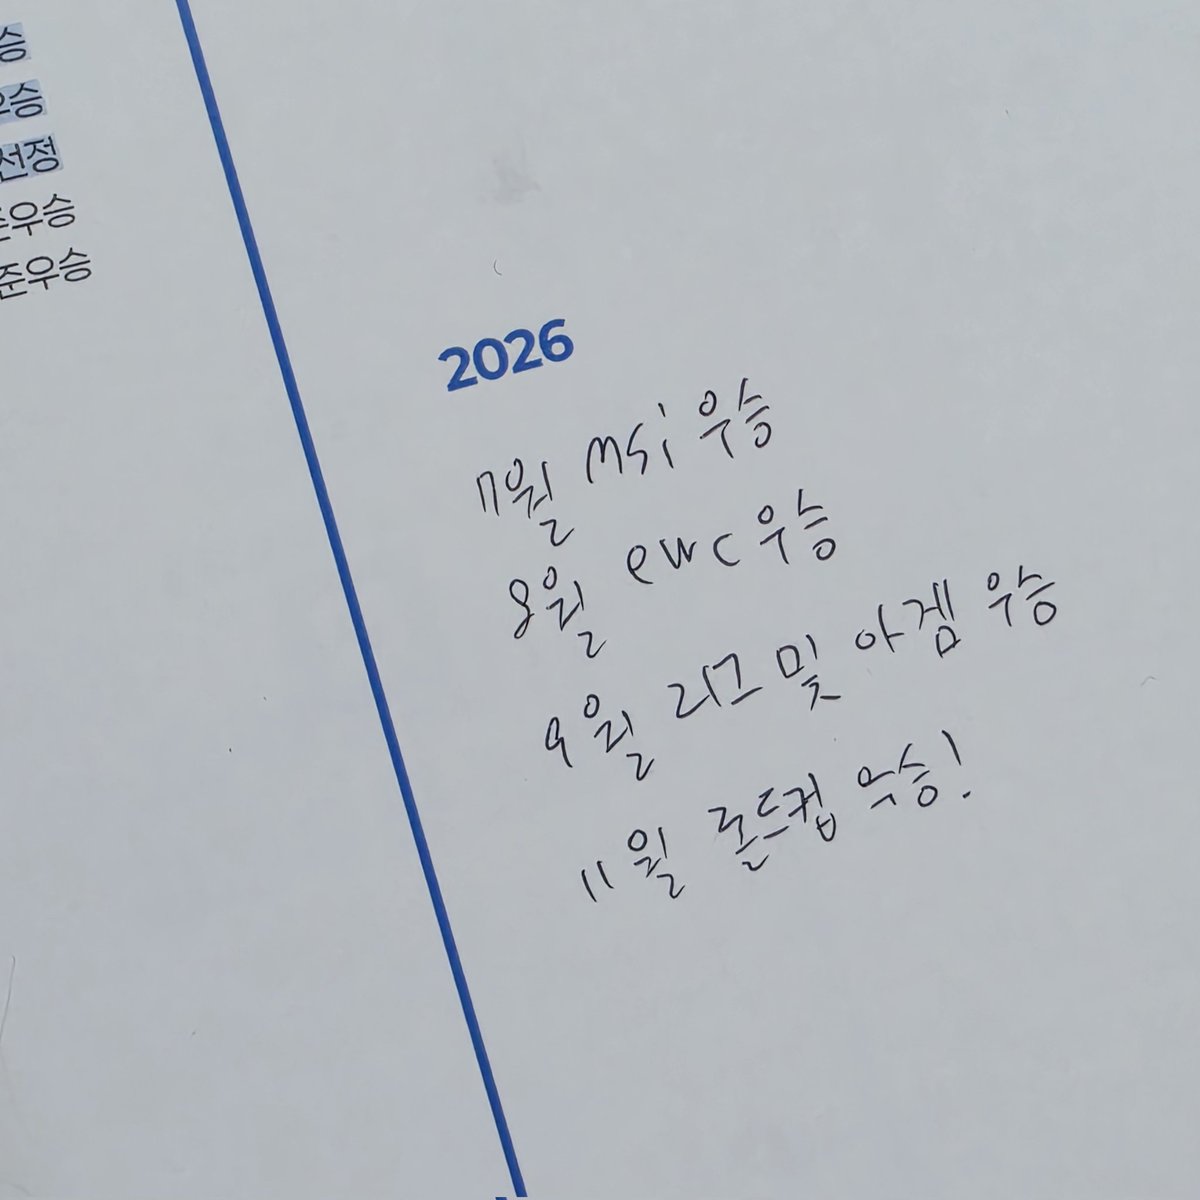 승
우승
선정
준우승
준우승
2026
7월 msi 우승
8월 ewc 우승
9월 리그 및 아겜 우승
11월 롤드컵 우승!